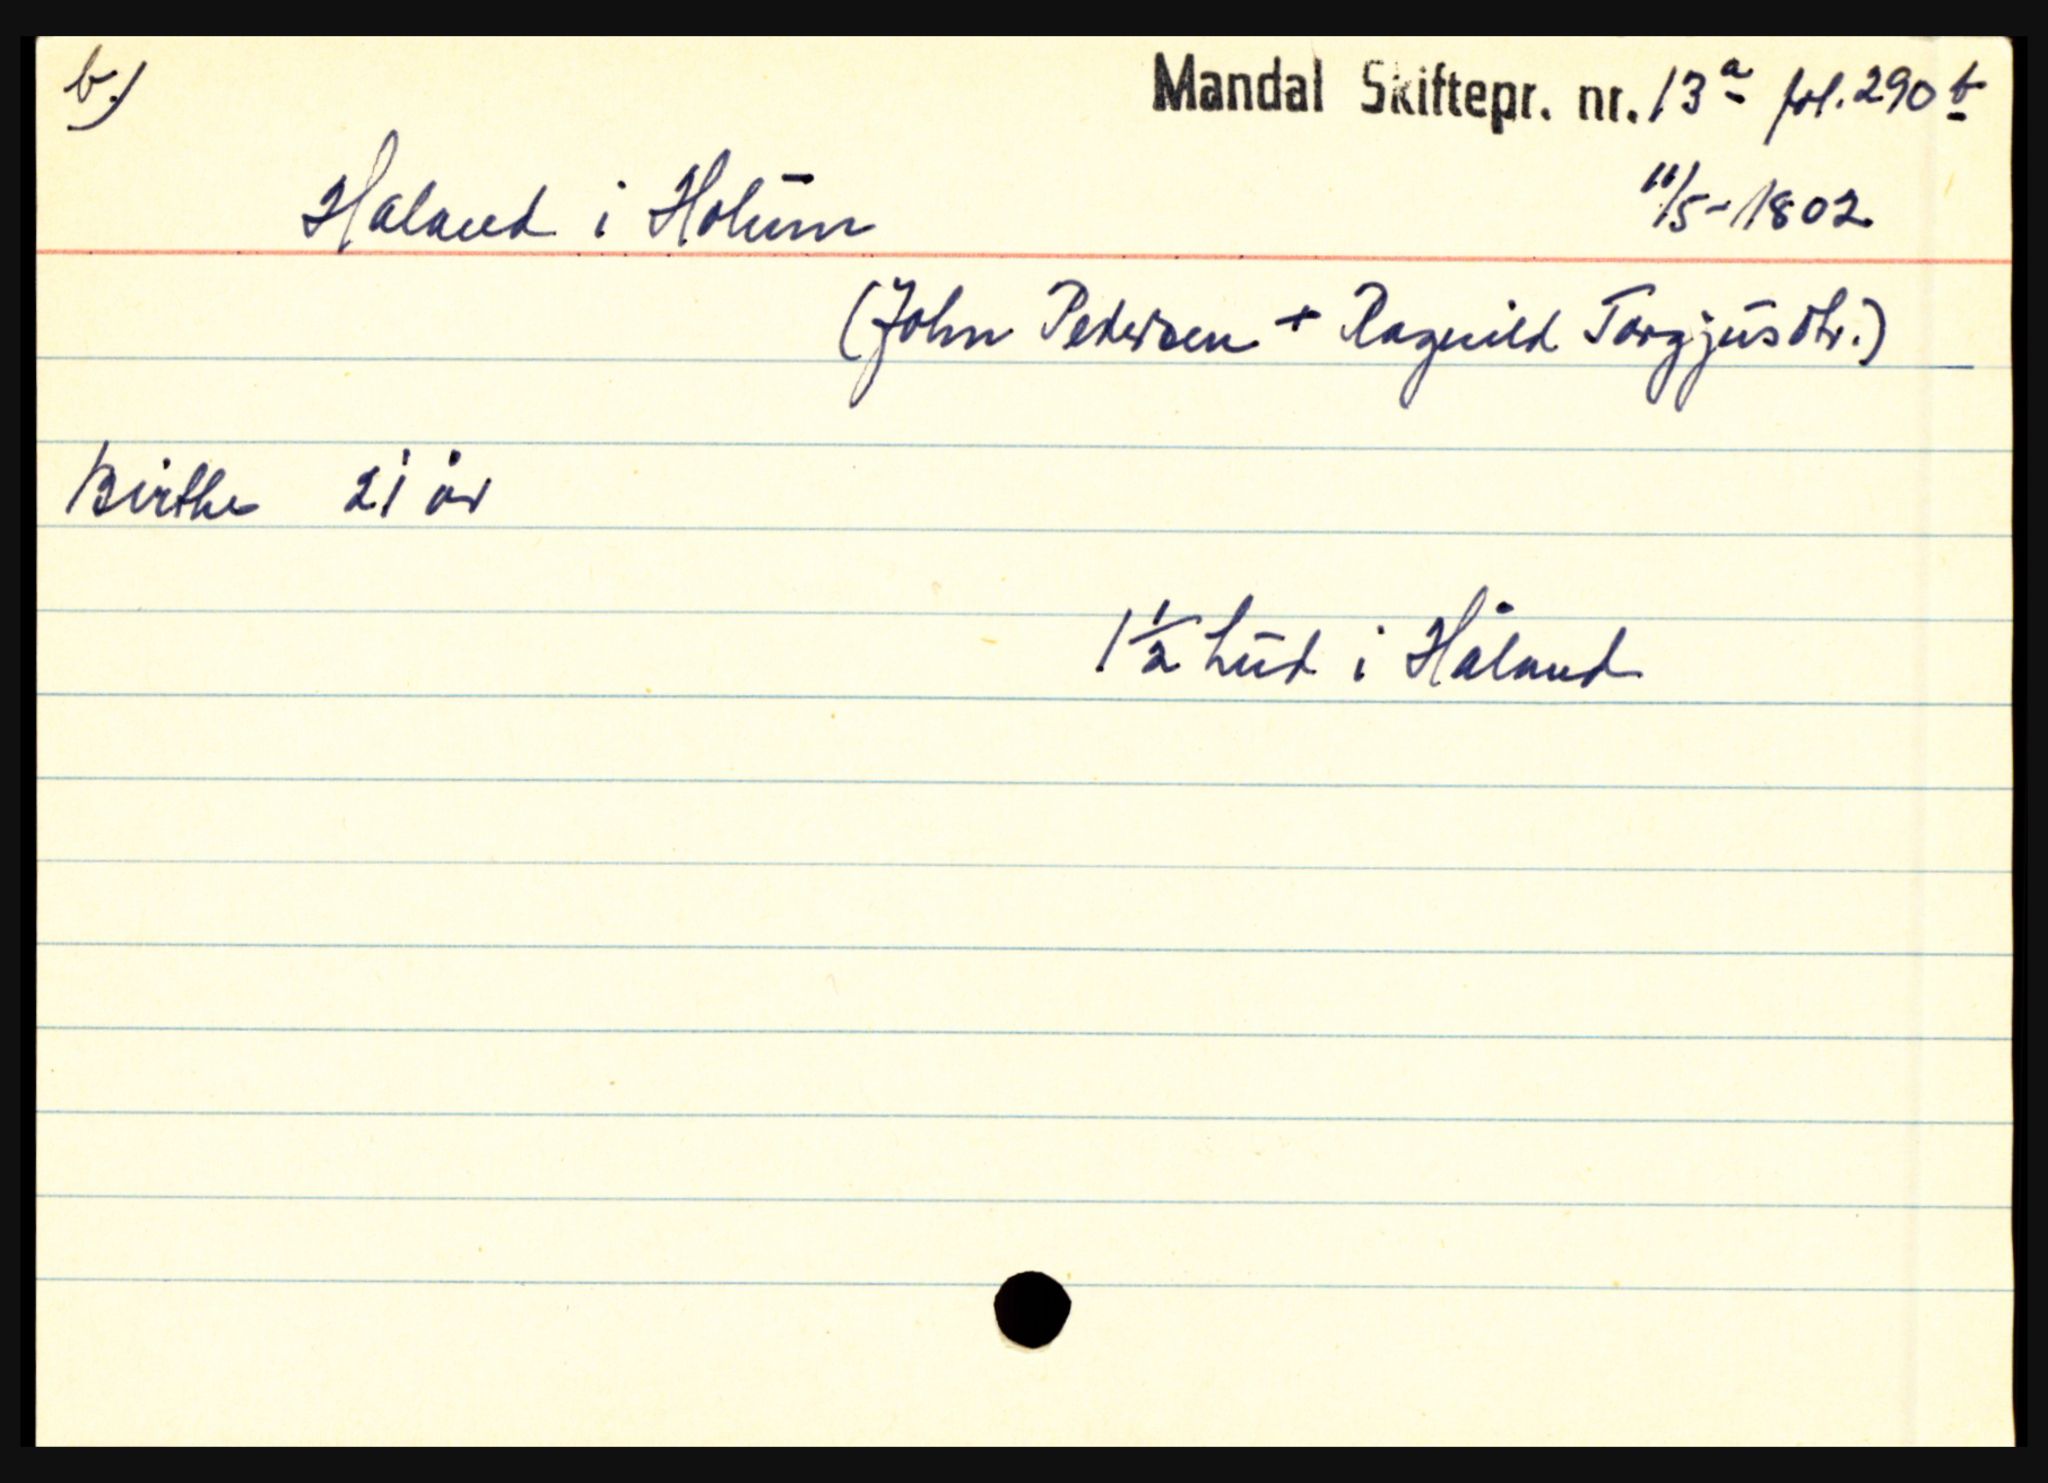 b.) Mandal Skiftepr. nr. 13a fol. 290b
Haland i Holum 11/5-1802
(John Pedersen + Ragnild Torgjusdtr.)
Birthe 21 år
1 1/2 hud i Håland